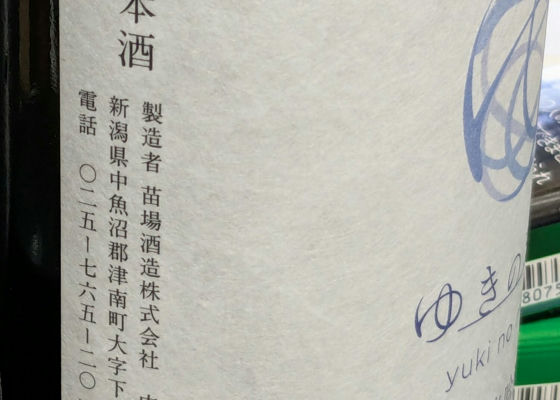 本酒
製造者 苗場酒造株式会社
新潟県中魚沼郡津南町大字下
電話 〇二五ー七六五ー二〇
ゆきの
yuki no
8075